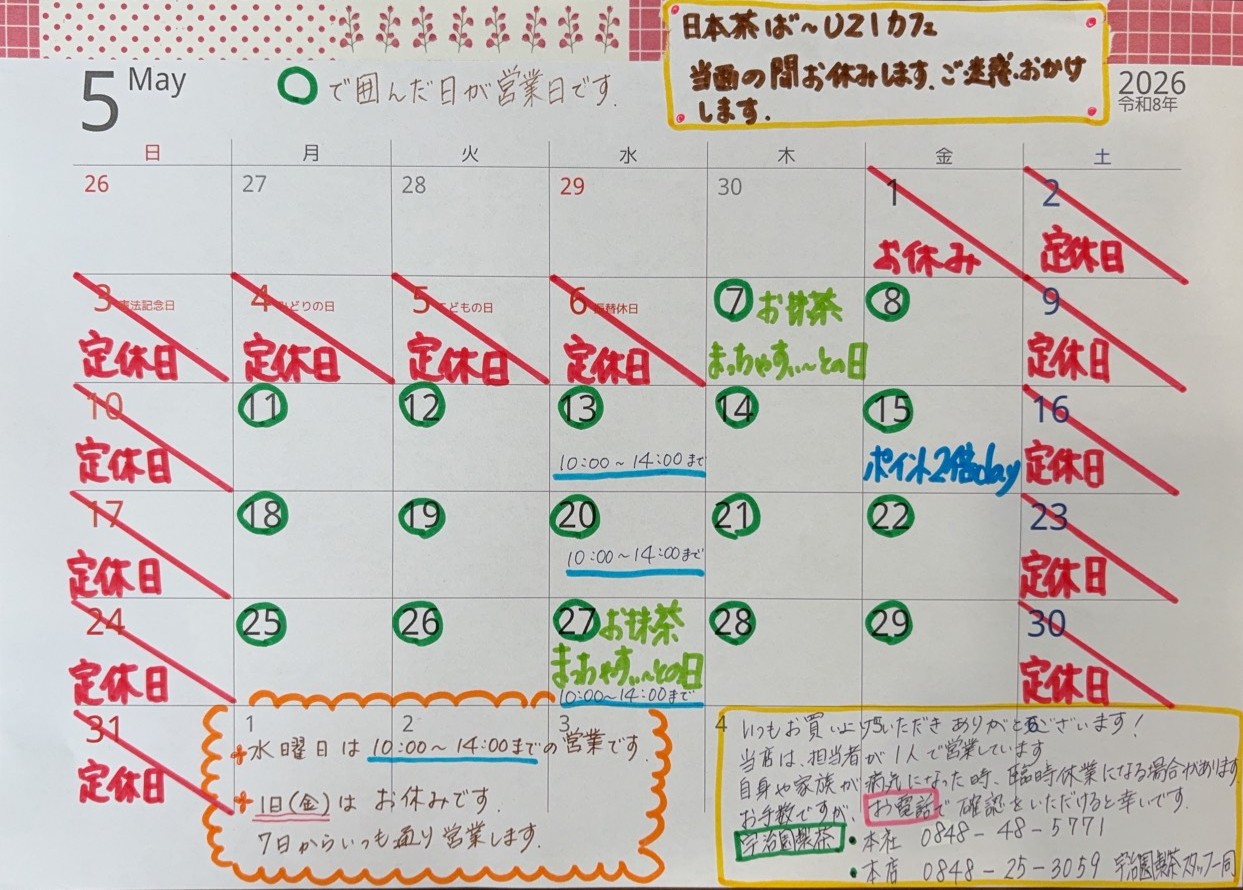 日本茶ば～UZIカフェ
当面の間お休みします。ご迷惑おかけ
します。
5 May
○で囲んだ日が営業日です。
2026
令和8年
日 月 火 水 木 金 土
26 27 28 29 30 1 2
お休み 定休日
3 憲法記念日 4 みどりの日 5 こどもの日 6 振替休日 7 お抹茶 8 9
定休日 定休日 定休日 定休日 まっちゃすぃ～との日 定休日
10 11 12 13 14 15 16
定休日 10:00～14:00まで ポイント2倍day 定休日
17 18 19 20 21 22 23
定休日 10:00～14:00まで 定休日
24 25 26 27 お抹茶 28 29 30
定休日 まっちゃすぃ～との日 定休日
10:00～14:00まで
31 1 2 3 4 5 6
定休日
水曜日は10:00～14:00までの営業です。
1日(金)は お休みです。
7日からいつも通り営業します。
いつもお買い上げいただき ありがとうございます!
当店は、担当者が1人で営業しています
自身や家族が病気になった時、臨時休業になる場合があります
お手数ですが、お電話で確認をいただけると幸いです。
宇治園製茶 ・本社 0848-48-5771
・本店 0848-25-3059 宇治園製茶スタッフ一同